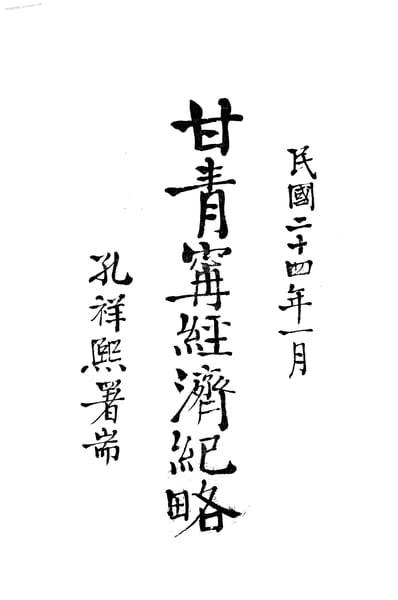 民國二十四年一月
甘青寗經濟紀略
孔祥熙署耑